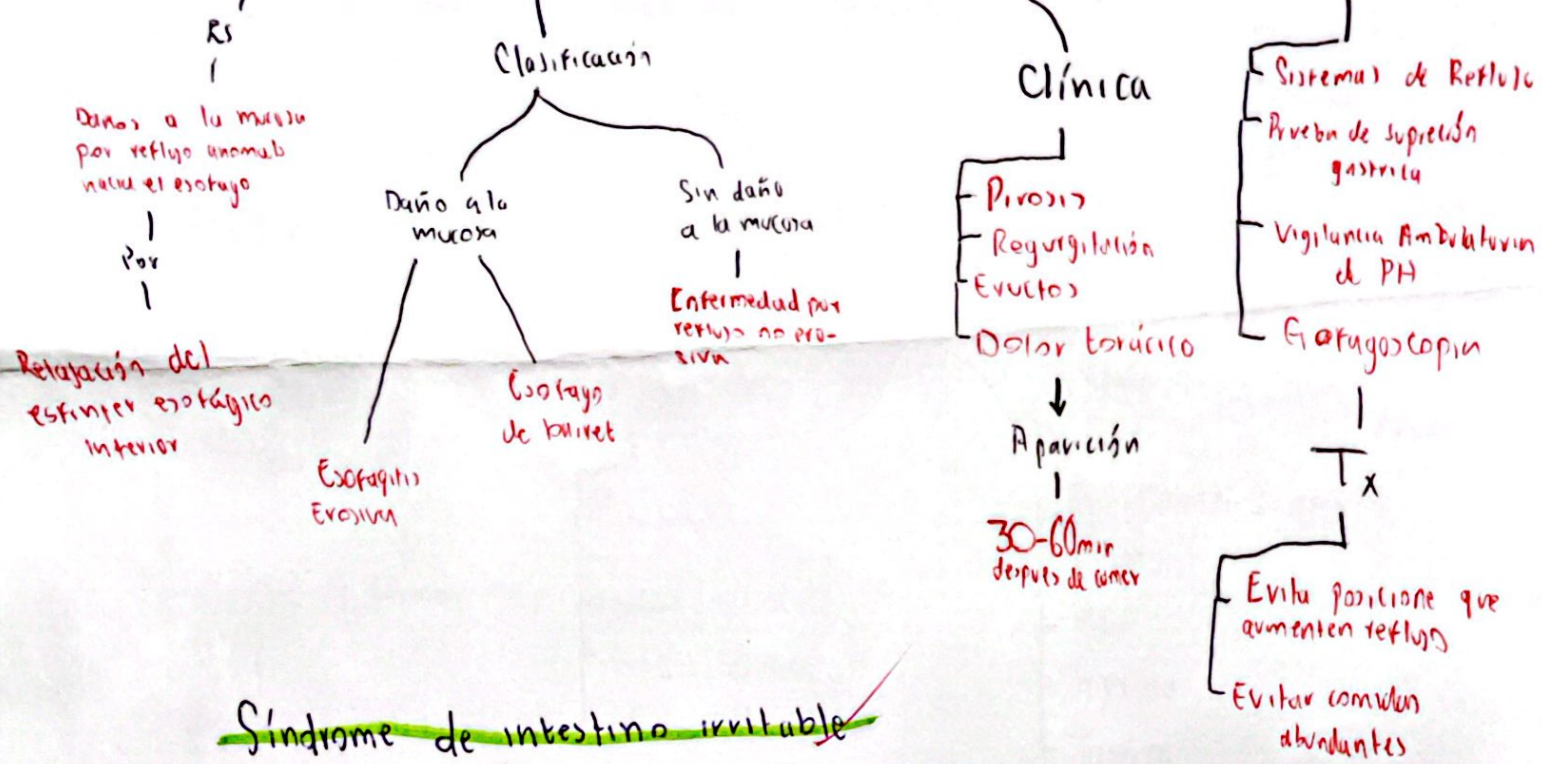 Es
Daños a la mucosa
por reflujo anomalo
hacia el esofago
Por
Relajación del
esfinter esofágico
inferior
Clasificación
Daño a la
mucosa
Esofagitis
Erosiva
Esofago
de barret
Sin daño
a la mucosa
Enfermedad por
reflujo no ero-
siva
Clínica
Pirosis
Regurgitación
Eructos
Dolor torácico
Aparición
30-60min
despues de comer
Sistemas de Reflujo
Prueba de supreción
gastrica
Vigilancia Ambulatoria
d PH
Esofagoscopia
Tx
Evita posicione que
aumenten reflujo
Evitar comidas
abundantes
Síndrome de intestino irritable